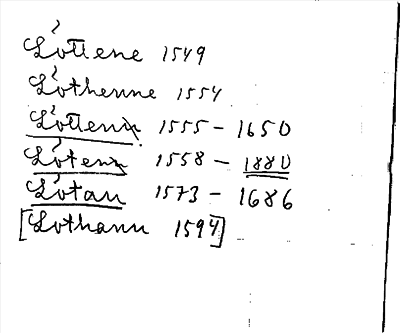 Lóttene 1549
Lóthenne 1554
Lótten 1555 - 1650
Lóten 1558 - 1880
Lótan 1573 - 1686
[Lothann 1594]